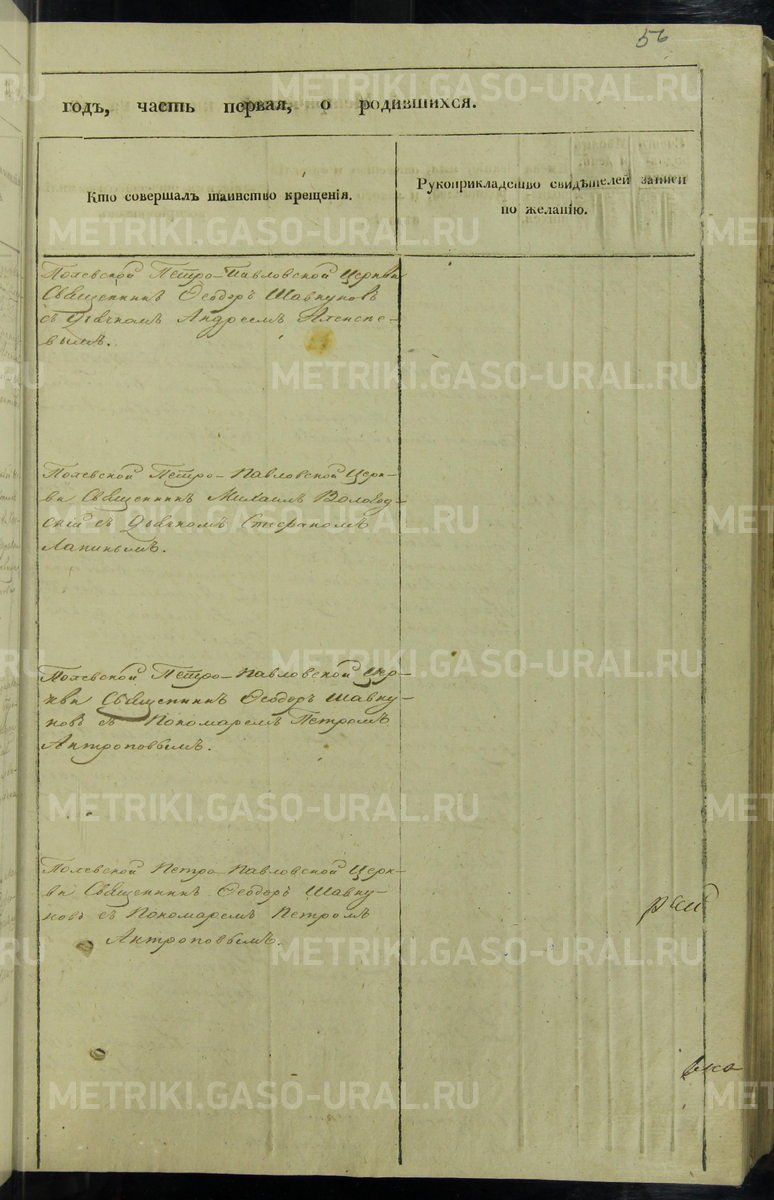 56
годъ, часть первая, о родившихся.
Кто совершалъ таинство крещенія.
Рукоприкладство свидѣтелей записи
по желанію.
Полевской Петро-Павловской Церкви
Священникъ Ѳеодоръ Шавкуновъ
съ Дьячкомъ Андреемъ
Полевской Петро-Павловской Церк-
ви Священникъ Михаилъ Вологод-
скій съ Дьячкомъ Стефаномъ
Лапинымъ.
Полевской Петро-Павловской Цер-
кви Священникъ Ѳеодоръ Шавку-
новъ съ Пономаремъ Петромъ
Антроповымъ.
Полевской Петро-Павловской Церк-
ви Священникъ Ѳеодоръ Шавку-
новъ съ Пономаремъ Петромъ
Антроповымъ.
METRIKI.GASO-URAL.RU